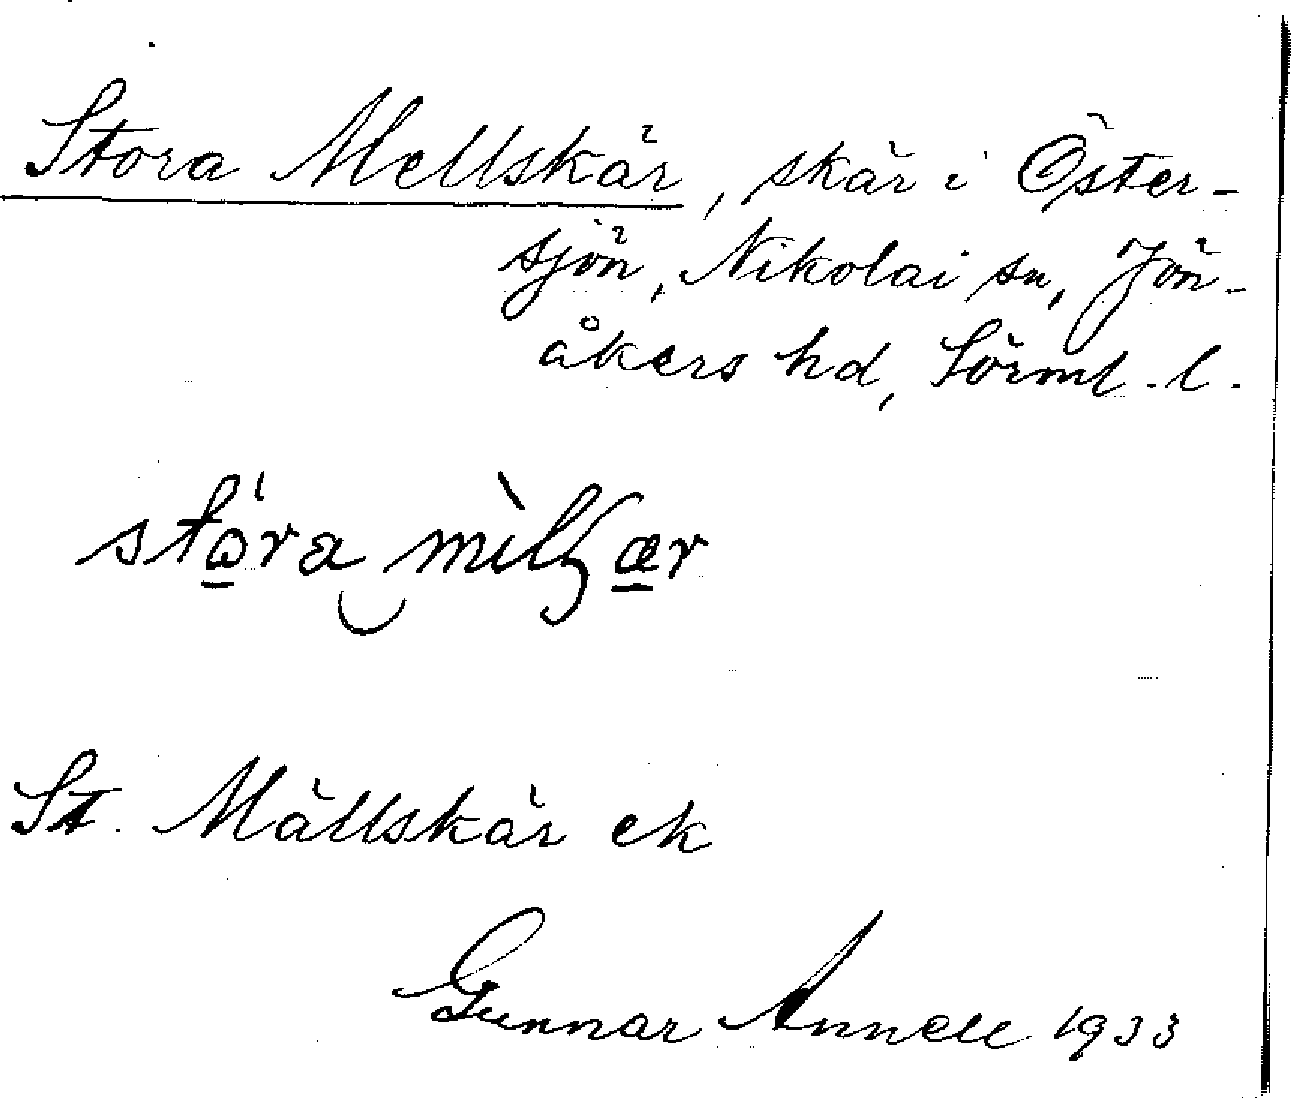 Stora Mellskär, skär i Öster-
sjön, Nikolai sn, Jön-
åkers hd, Sörml. l.
stⱥ́ra mìlʒær
St. Mällskär ek
Gunnar Annell 1933